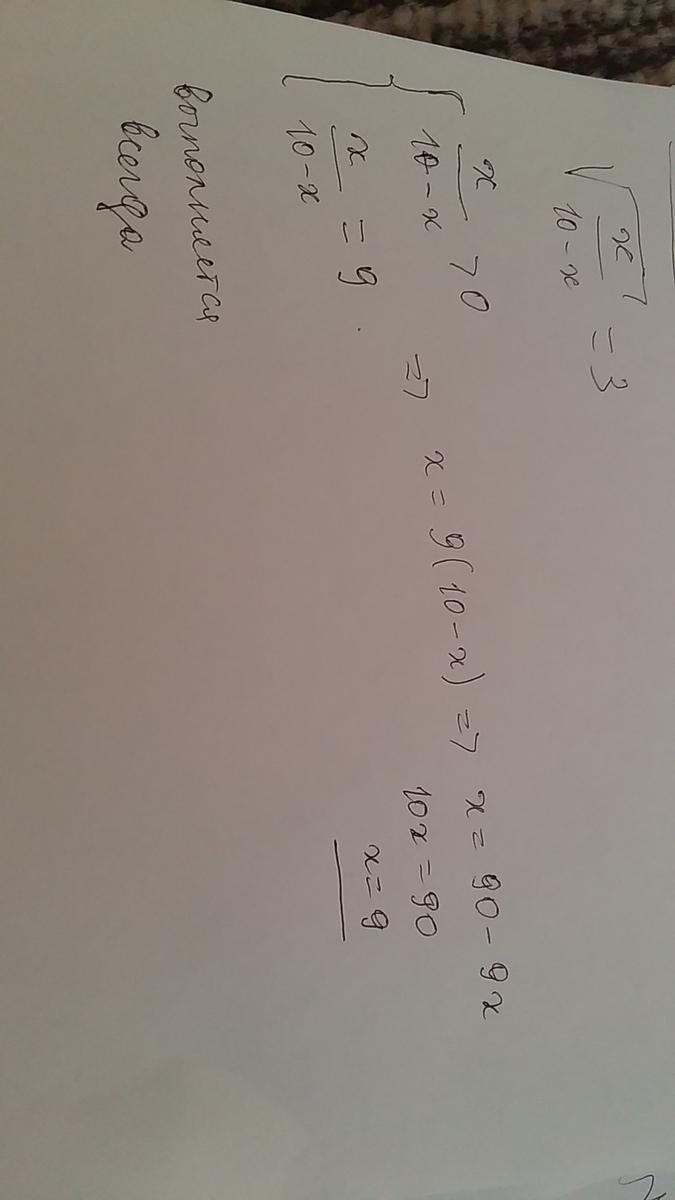 √(x/(10-x)) = 3
{ x/(10-x) > 0
x/(10-x) = 9
=> x = 9(10-x) => x = 90-9x
10x = 90
x = 9
выполняется
всегда